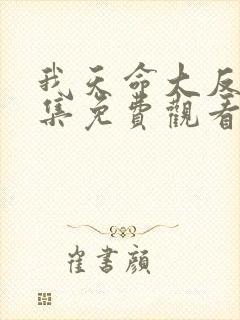 我天命大反
集免費觀看
崔書顏